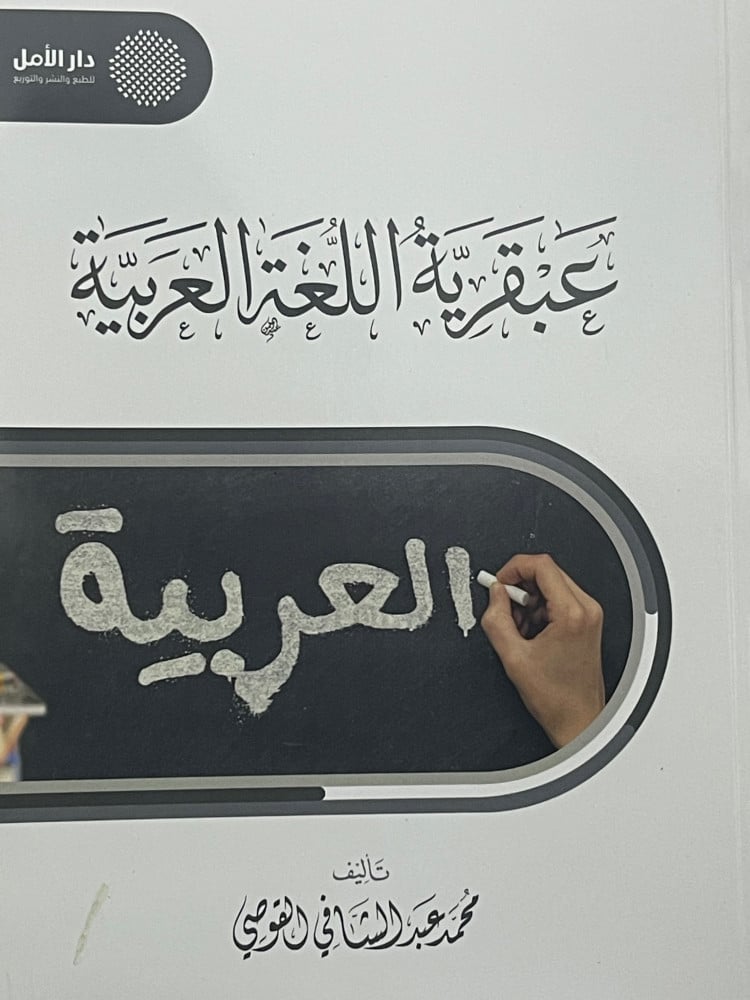 دار الأمل
للطبع والنشر والتوزيع
عَبْقَرِيَّةُ اللُّغَةِ العَرَبِيَّةِ
العربية
تَأليف
مُحَمَّد عَبد الشَّافِي القُوصِي